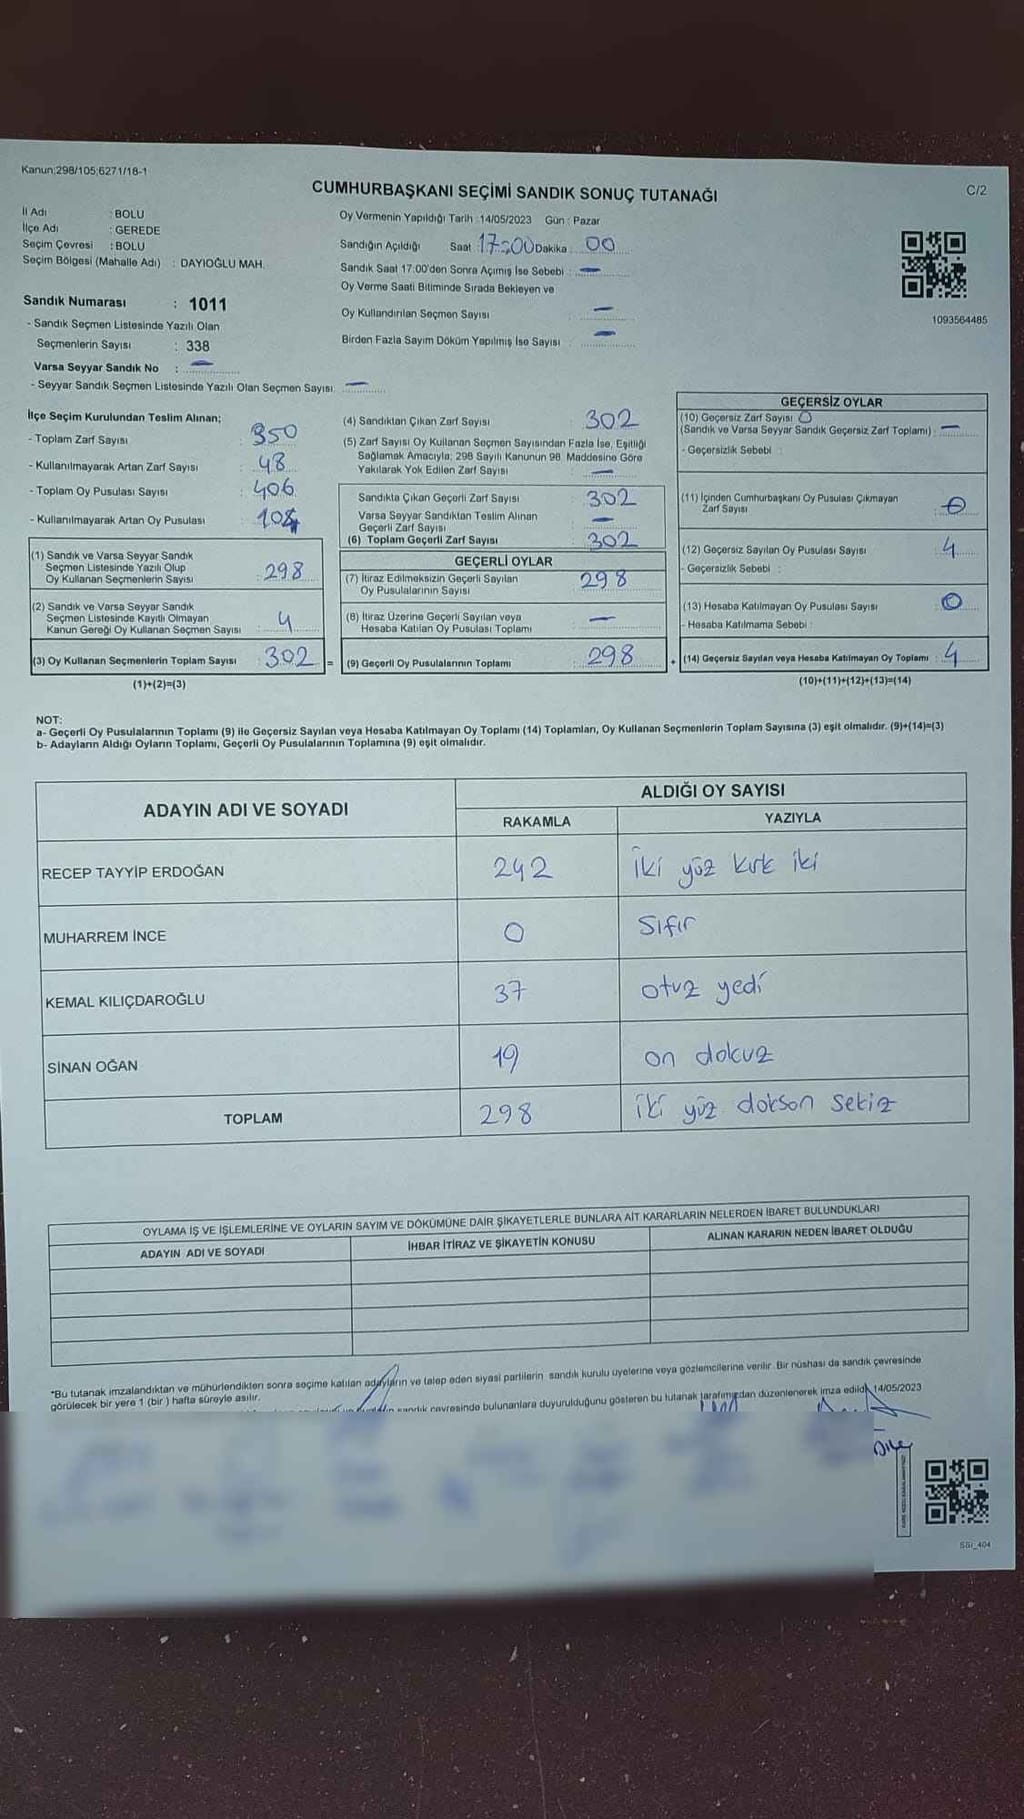 Kanun;298/105;6271/18-1
CUMHURBAŞKANI SEÇİMİ SANDIK SONUÇ TUTANAĞI
C/2
İl Adı : BOLU
İlçe Adı : GEREDE
Seçim Çevresi : BOLU
Seçim Bölgesi (Mahalle Adı) : DAYIOĞLU MAH.
Sandık Numarası : 1011
- Sandık Seçmen Listesinde Yazılı Olan
Seçmenlerin Sayısı : 338
Varsa Seyyar Sandık No : —
- Seyyar Sandık Seçmen Listesinde Yazılı Olan Seçmen Sayısı —
Oy Vermenin Yapıldığı Tarih : 14/05/2023 Gün : Pazar
Sandığın Açıldığı Saat : 17:00 Dakika : 00
Sandık Saat 17:00'den Sonra Açımış İse Sebebi : —
Oy Verme Saati Bitiminde Sırada Bekleyen ve
Oy Kullandırılan Seçmen Sayısı : —
Birden Fazla Sayım Döküm Yapılmış İse Sayısı : —
1093564485
İlçe Seçim Kurulundan Teslim Alınan;
- Toplam Zarf Sayısı : 350
- Kullanılmayarak Artan Zarf Sayısı : 48
- Toplam Oy Pusulası Sayısı : 406
- Kullanılmayarak Artan Oy Pusulası : 104
(1) Sandık ve Varsa Seyyar Sandık
Seçmen Listesinde Yazılı Olup
Oy Kullanan Seçmenlerin Sayısı : 298
(2) Sandık ve Varsa Seyyar Sandık
Seçmen Listesinde Kayıtlı Olmayan
Kanun Gereği Oy Kullanan Seçmen Sayısı : 4
(3) Oy Kullanan Seçmenlerin Toplam Sayısı : 302 =
(1)+(2)=(3)
(4) Sandıktan Çıkan Zarf Sayısı : 302
(5) Zarf Sayısı Oy Kullanan Seçmen Sayısından Fazla İse, Eşitliği
Sağlamak Amacıyla; 298 Sayılı Kanunun 98. Maddesine Göre
Yakılarak Yok Edilen Zarf Sayısı : —
Sandıkta Çıkan Geçerli Zarf Sayısı : 302
Varsa Seyyar Sandıktan Teslim Alınan
Geçerli Zarf Sayısı : —
(6) Toplam Geçerli Zarf Sayısı : 302
GEÇERLİ OYLAR
(7) İtiraz Edilmeksizin Geçerli Sayılan
Oy Pusulalarının Sayısı : 298
(8) İtiraz Üzerine Geçerli Sayılan veya
Hesaba Katılan Oy Pusulası Toplamı : —
(9) Geçerli Oy Pusulalarının Toplamı : 298 +
GEÇERSİZ OYLAR
(10) Geçersiz Zarf Sayısı 0
(Sandık ve Varsa Seyyar Sandık Geçersiz Zarf Toplamı) : —
- Geçersizlik Sebebi :
(11) İçinden Cumhurbaşkanı Oy Pusulası Çıkmayan
Zarf Sayısı : 0
(12) Geçersiz Sayılan Oy Pusulası Sayısı : 4
- Geçersizlik Sebebi :
(13) Hesaba Katılmayan Oy Pusulası Sayısı : 0
- Hesaba Katılmama Sebebi :
(14) Geçersiz Sayılan veya Hesaba Katılmayan Oy Toplamı : 4
(10)+(11)+(12)+(13)=(14)
NOT:
a- Geçerli Oy Pusulalarının Toplamı (9) ile Geçersiz Sayılan veya Hesaba Katılmayan Oy Toplamı (14) Toplamları, Oy Kullanan Seçmenlerin Toplam Sayısına (3) eşit olmalıdır. (9)+(14)=(3)
b- Adayların Aldığı Oyların Toplamı, Geçerli Oy Pusulalarının Toplamına (9) eşit olmalıdır.
ADAYIN ADI VE SOYADI ALDIĞI OY SAYISI
RAKAMLA YAZIYLA
RECEP TAYYİP ERDOĞAN 242 iki yüz kırk iki
MUHARREM İNCE 0 Sıfır
KEMAL KILIÇDAROĞLU 37 otuz yedi
SİNAN OĞAN 19 on dokuz
TOPLAM 298 iki yüz dokson sekiz
OYLAMA İŞ VE İŞLEMLERİNE VE OYLARIN SAYIM VE DÖKÜMÜNE DAİR ŞİKAYETLERLE BUNLARA AİT KARARLARIN NELERDEN İBARET BULUNDUKLARI
ADAYIN ADI VE SOYADI İHBAR İTİRAZ VE ŞİKAYETİN KONUSU ALINAN KARARIN NEDEN İBARET OLDUĞU
*Bu tutanak imzalandıktan ve mühürlendikten sonra seçime katılan adayların ve talep eden siyasi partilerin sandık kurulu üyelerine veya gözlemcilerine verilir. Bir nüshası da sandık çevresinde
görülecek bir yere 1 (bir ) hafta süreyle asılır.
sandık çevresinde bulunanlara duyurulduğunu gösteren bu tutanak tarafımızdan düzenlenerek imza edildi. 14/05/2023
SSİ_404